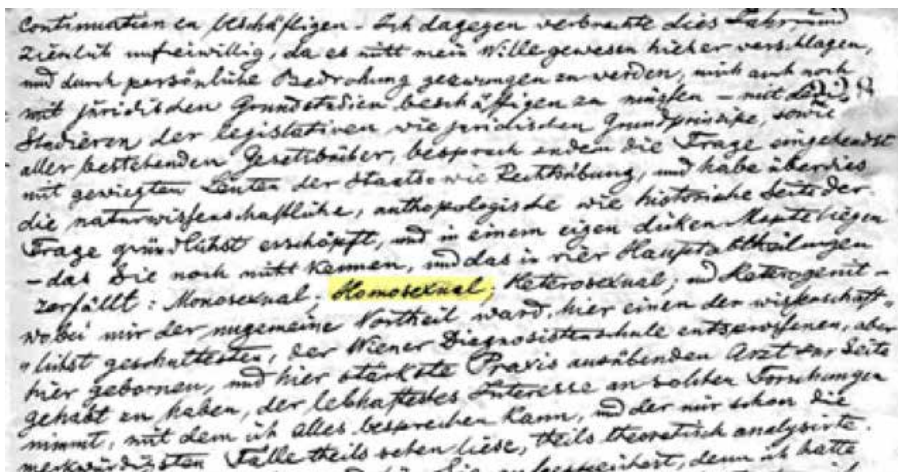 Continuation zu beschäftigen. Ich dagegen verbrachte dies Jahr, und
ziemlich unfreiwillig, da es nicht mein Wille gewesen hieher verschlagen,
und durch persönliche Bedrohung gezwungen zu werden, mich auch noch
mit juridischen Grundstudien beschäftigen zu müssen – mit
Studieren der legislativen wie juridischen Grundprincipe, sowie
aller bestehenden Gesetzbücher, besprach zudem die Frage eingehendst
mit gewiegten Leuten der Staats wie Rechtsübung, und habe überdies
die naturwissenschaftliche, anthopologische wie historische Seite der
Frage gründlichst erschöpft, und in einem eigen dicken
– das Sie noch nicht kennen, und das in vier Hauptabtheilungen
zerfällt: Monosexual; Homosexual; Heterosexual; und Heterogenit –
wobei mir der ungemeine Vortheil ward, hier einen der wissenschaft-
lichst geschultesten, der Wiener Diagnostistenschule entsprossenen, aber
hier gebornen, und hier stärkste Praxis ausübenden Arzt zur Seite
gehabt zu haben, der lebhaftestes Interesse an solchen Forschungen
nimmt, mit dem ich alles besprechen kann, und der mir schon die
merkwürdigsten Fälle theils sehen liese, theils theoretisch analysirte.
denn ich hatte